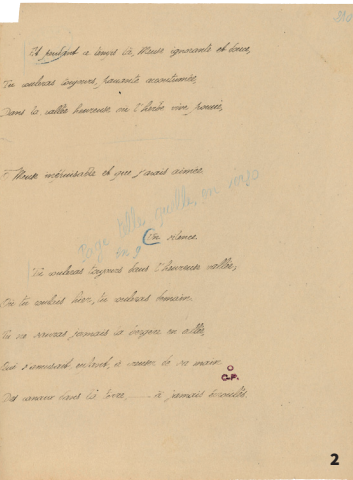 Et pendant ce temps là, Meuse ignorante et douce,
Tu couleras toujours, passante accoutumée,
Dans la vallée heureuse où l'herbe vive pousse,
Ô Meuse inépuisable et que j'avais aimée.
Un silence.
Tu couleras toujours dans l'heureuse vallée;
Où tu coulais hier, tu couleras demain.
Tu ne sauras jamais la bergère en allée,
Qui s'amusait, enfant, à creuser de sa main
C.P.
Des canaux dans la terre, — à jamais écroulés.
2